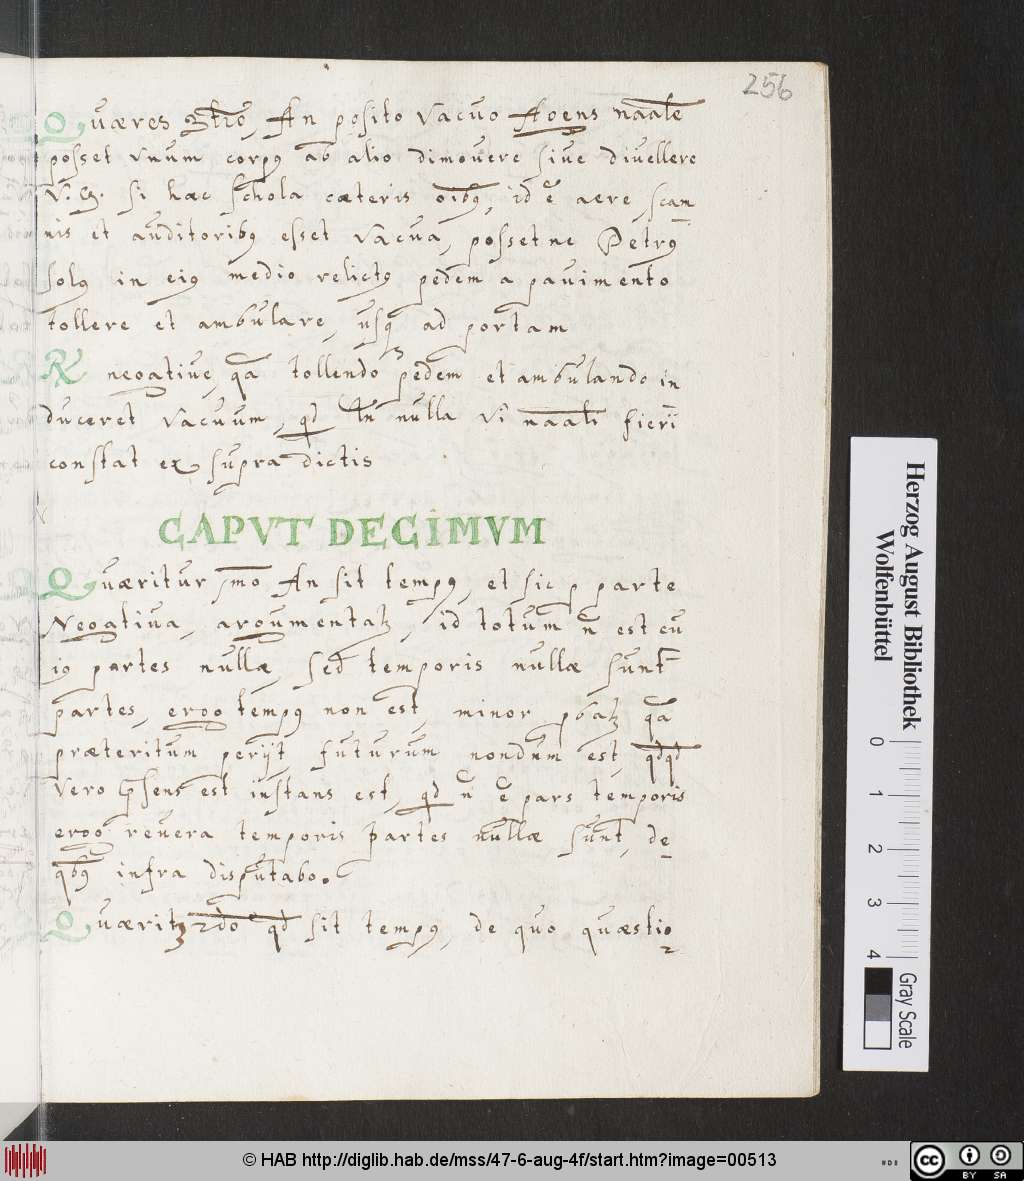 256
Quæres 3tio, An posito vacuo Agens naãle
posset vnum corpq ab alio dimouere siue diuellere
V. G. si hæc schola cæteris oĩbq, id ẽ aere, scam
nis et auditoribq esset vacua, possetne Petrq
solq in eiq medio relictq pedem a pauimento
tollere et ambulare, usq ad portam
R negatiue, qa tollendo pedem et ambulando in
duceret vacuum, qd tñ nulla vi naãli fieri
constat ex supra dictis
CAPVT DECIMVM
Quæritur pmo An sit tempq, et sic p parte
Negatiua, argumentatz, id totum ñ est cu
iq partes nullæ, sed temporis nullæ sunt
partes, ergo tempq non est, minor pbatz qa
præteritum perijt, futurum nondum est, qdqd
vero psens est instans est, qd ñ ẽ pars temporis
ergo reuera temporis partes nullæ sunt, de
qbq infra disputabo.
Quæritz 2do qd sit tempq, de quo quæstio
Herzog August Bibliothek
Wolfenbüttel
0 1 2 3 4
Gray Scale
© HAB http://diglib.hab.de/mss/47-6-aug-4f/start.htm?image=00513
cc BY SA